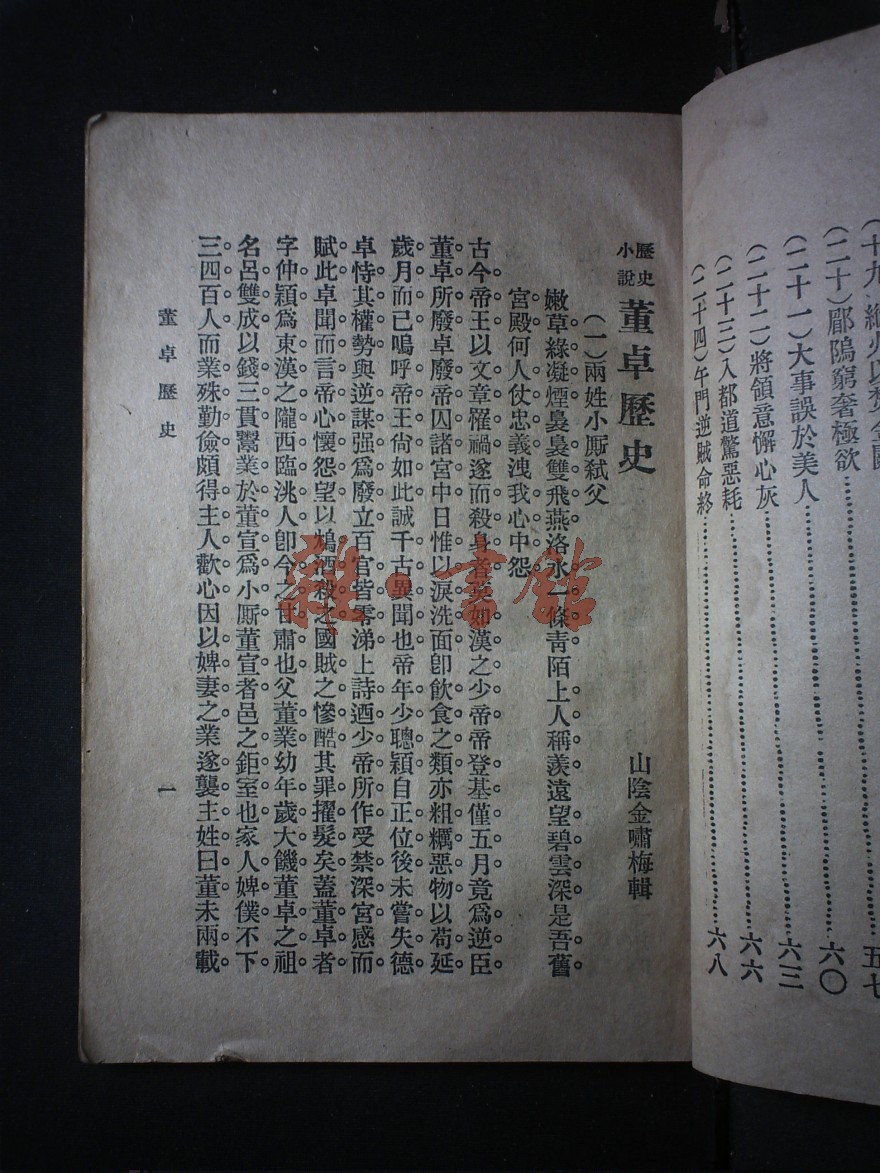 (二十)郿塢窮奢極欲六〇
(二十一)大事誤於美人六三
(二十二)將領意懈心灰六六
(二十三)入都道驚惡耗六八
(二十四)午門逆賊命終
歷史小說 董卓歷史
山陰金嘯梅輯
(一)兩姓小厮弑父
嫩草綠凝煙裊裊雙飛燕洛水一條靑陌上人稱羨遠望碧雲深是吾舊
宮殿何人仗忠義洩我心中怨
古今帝王以文章罹禍遂而殺身者莫如漢之少帝帝登基僅五月竟爲逆臣
董卓所廢卓廢帝囚諸宮中日惟以淚洗面卽飮食之類亦粗糲惡物以苟延
歲月而已嗚呼帝王尙如此誠千古異聞也帝年少聰穎自正位後未嘗失德
卓恃其權勢與逆謀强爲廢立百官皆零涕上詩迺少帝所作受禁深宮感而
賦此卓聞而言帝心懷怨望以鴆酒殺之國賊之慘酷其罪擢髮矣蓋董卓者
字仲穎爲東漢之隴西臨洮人卽今之甘肅也父董業幼年歲大饑董卓之祖
名呂雙成以錢三貫鬻業於董宣爲小厮董宣者邑之鉅室也家人婢僕不下
三四百人而業殊勤儉頗得主人歡心因以婢妻之業遂襲主姓曰董未兩載
董卓歷史
一
雜·書館